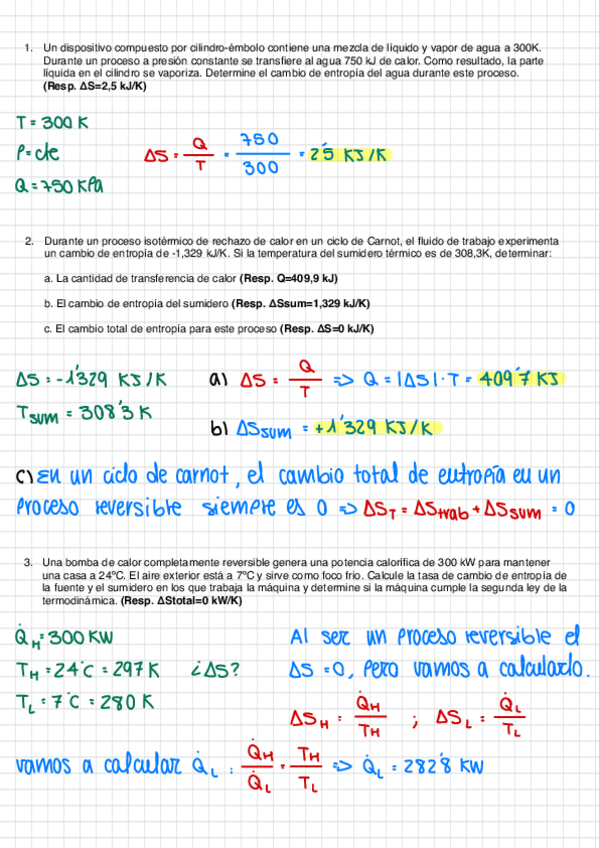 1. Un dispositivo compuesto por cilindro-émbolo contiene una mezcla de líquido y vapor de agua a 300K.
Durante un proceso a presión constante se transfiere al agua 750 kJ de calor. Como resultado, la parte
líquida en el cilindro se vaporiza. Determine el cambio de entropía del agua durante este proceso.
(Resp. ΔS=2,5 kJ/K)
T = 300 K
P = cte
Q = 750 KPa
ΔS = Q/T = 750/300 = 2'5 KJ/K
2. Durante un proceso isotérmico de rechazo de calor en un ciclo de Carnot, el fluido de trabajo experimenta
un cambio de entropía de -1,329 kJ/K. Si la temperatura del sumidero térmico es de 308,3K, determinar:
a. La cantidad de transferencia de calor (Resp. Q=409,9 kJ)
b. El cambio de entropía del sumidero (Resp. ΔSsum=1,329 kJ/K)
c. El cambio total de entropía para este proceso (Resp. ΔS=0 kJ/K)
ΔS = -1'329 KJ/K
T sum = 308'3 K
a) ΔS = Q/T => Q = |ΔS|·T = 409'7 KJ
b) ΔS sum = +1'329 KJ/K
c) En un ciclo de carnot, el cambio total de entropía en un
proceso reversible siempre es 0 => ΔS T = ΔS trab + ΔS sum = 0
3. Una bomba de calor completamente reversible genera una potencia calorífica de 300 kW para mantener
una casa a 24ºC. El aire exterior está a 7ºC y sirve como foco frio. Calcule la tasa de cambio de entropía de
la fuente y el sumidero en los que trabaja la máquina y determine si la máquina cumple la segunda ley de la
termodinámica. (Resp. ΔStotal=0 kW/K)
Q̇H = 300 KW
TH = 24°C = 297 K ¿ΔS?
TL = 7°C = 280 K
Al ser un proceso reversible el
ΔS = 0, pero vamos a calcularlo.
ΔS H = Q̇H/TH ; ΔS L = Q̇L/TL
vamos a calcular Q̇L : Q̇H/Q̇L = TH/TL => Q̇L = 282'8 KW